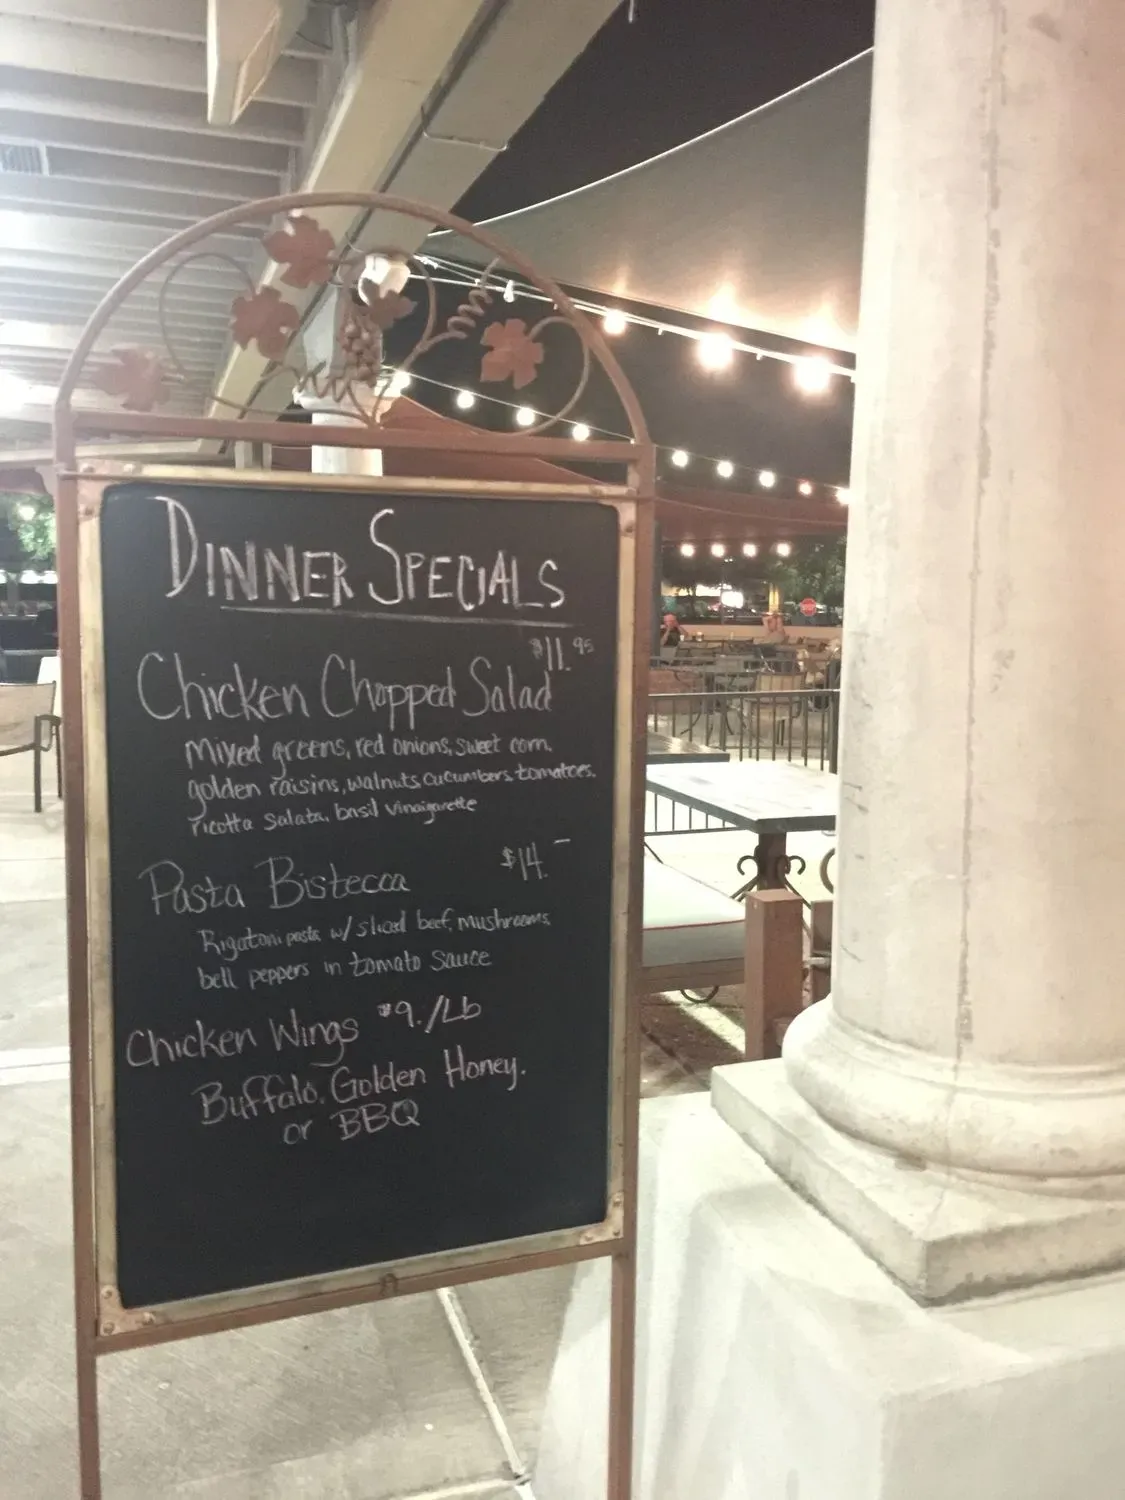 DINNER SPECIALS
$11.95
Chicken Chopped Salad
Mixed greens, red onions, sweet corn,
golden raisins, walnuts, cucumbers, tomatoes,
ricotta salata, basil vinaigarette
Pasta Bistecca $14.-
Rigatoni pasta w/ sliced beef, mushrooms,
bell peppers in tomato sauce
Chicken Wings $9./Lb
Buffalo, Golden Honey,
or BBQ